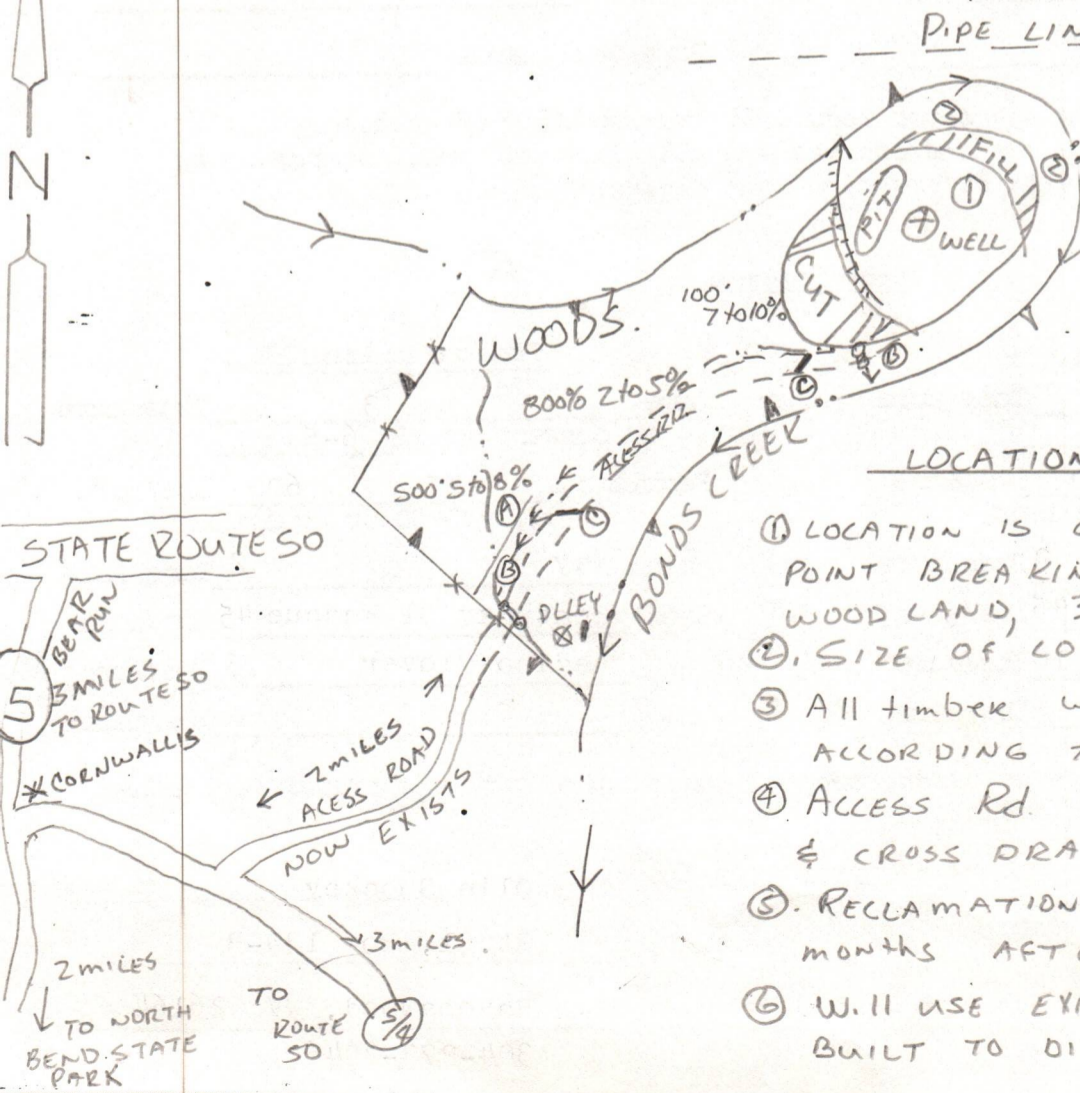 PIPE LIN
N
② FILL ②
PIT ① + WELL
CUT
100'
7 to 10%
WOODS.
B
C
800% 2 to 5%
ACESS RD
500' 5 to 8%
A
C
B
BONDS CREEK
DLLEY
STATE ROUTE 50
BEAR
RUN
5
3 MILES
TO ROUTE 50
CORNWALLIS
2 MILES
ACESS ROAD
NOW EXISTS
3 MILES
2 MILES
TO NORTH
BEND STATE
PARK
TO
ROUTE
50
5/4
LOCATION
① LOCATION IS
POINT BREAKIN
WOOD LAND,
②. SIZE OF LO
③ All timber W
ACCORDING
④ ACCESS Rd
& CROSS DRA
⑤. RECLAMATION
months AFT
⑥ Will USE EXI
BUILT TO DI